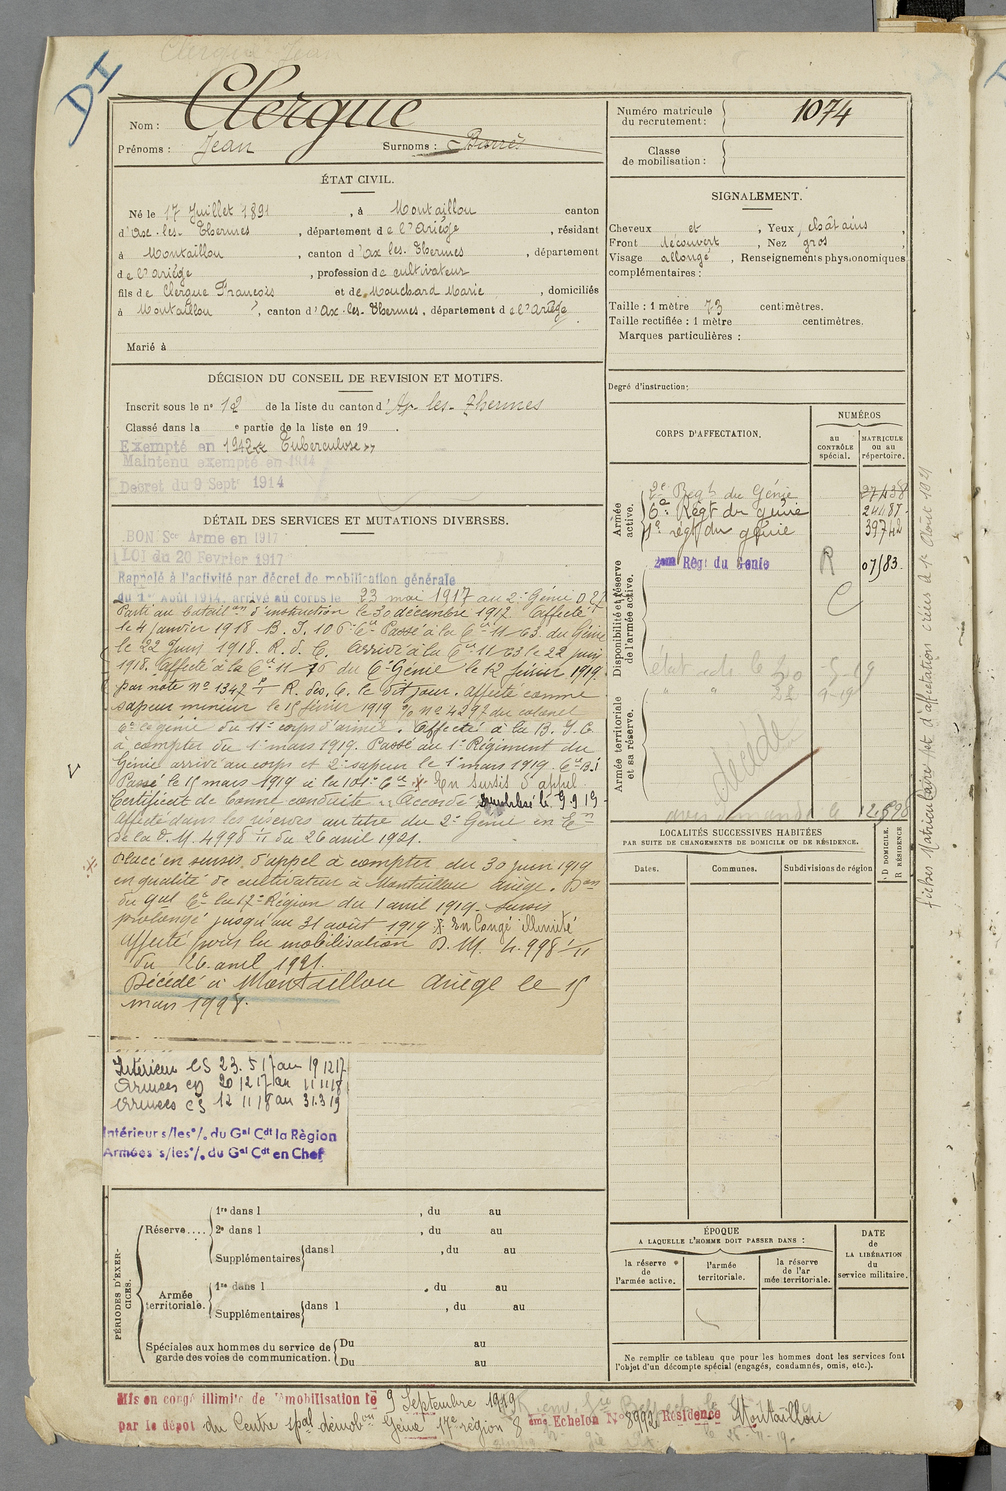 DI
Clergue
Nom :
Prénoms : Jean Surnoms :
ÉTAT CIVIL.
Né le 17 Juillet 1891, à Montaillou canton
d'Ax-les-Thermes, département de l'Ariége, résidant
à Montaillou, canton d'ax les Thermes, département
de l'ariége, profession de cultivateur
fils de Clergue François et de Mouchard Marie, domiciliés
à Montaillou, canton d'Ax-les-Thermes, département de l'Ariége
Marié à
DÉCISION DU CONSEIL DE REVISION ET MOTIFS.
Inscrit sous le n° 12 de la liste du canton d'Ax-les-Thermes
Classé dans la e partie de la liste en 19 .
Exempté en 1912 Tuberculose
Maintenu exempté en 1914
Decret du 9 Septe 1914
DÉTAIL DES SERVICES ET MUTATIONS DIVERSES.
BON Sce Armé en 1917
LOI du 20 Fevrier 1917
Rappelé à l'activité par décret de mobilisation générale
du 1er Août 1914, arrivé au corps le 23 mai 1917 au 2e Génie
Parti au bataillon d'instruction le 30 décembre 1917 Affecté
le 4 janvier 1918 B. I. 106 Cie Passé à la Cie 11/63 du Génie
le 22 Juin 1918. R. d. C. arrivé à la Cie 11/63 le 22 juin
1918. Affecté à la Cie 11/76 du 6e Génie le 12 février 1919
par note n° 1347 R. du. C. le dit jour. affecté comme
sapeur mineur le 15 février 1919 n° 4297 du colonel
Ct le génie du 11e corps d'armée. Affecté à la B. I. C.
à compter du 1er mars 1919. Passé au 1er Régiment du
Génie arrivé au corps et 2e sapeur le 1er mars 1919.
Passé le 15 mars 1919 à la 101e Cie En sursis d'appel
Certificat de bonne conduite "Accordé" le 9-9-19-
affecté dans les réserves au titre du 2e Génie en Con
de la D. M. 4998 1/11 du 26 avril 1921.
Placé en sursis d'appel à compter du 30 juin 1919
en qualité de cultivateur à Montaillou Ariége. Don
du Gal Ct la 17e Région du 1 avril 1919. Sursis
prolongé jusqu'au 31 août 1919 En Congé illimité
affecté pour la mobilisation D. M. 4.998 1/11
du 26 avril 1921.
Décédé à Montaillou Ariége le 15
mars 1998.
Intérieur CS 23.5 17 au 19 12 17
Armées CD 20 12 17 au 11 11 18
Armées CS 12 11 18 au 31.3 19
Intérieur s/les % du Gal Cdt la Règion
Armées s/les % du Gal Cdt en Chef
PÉRIODES D'EXERCICES.
Réserve....
1re dans l , du au
2e dans l , du au
Supplémentaires dans l , du au
Armée territoriale.
1re dans l , du au
Supplémentaires dans l , du au
Spéciales aux hommes du service de garde des voies de communication.
Du au
Du au
Mis en congé illimité de démobilisation le 9 Septembre 1919
par le dépot du Centre spal démobon Génie 17e région 8 ème Echelon N° 3992 Résidence Montaillou
Numéro matricule du recrutement : 1074
Classe de mobilisation :
SIGNALEMENT.
Cheveux et, Yeux châtains,
Front découvert, Nez gros
Visage allongé, Renseignements physionomiques
complémentaires :
Taille : 1 mètre 73 centimètres.
Taille rectifiée : 1 mètre centimètres.
Marques particulières :
Degré d'instruction:
CORPS D'AFFECTATION.
NUMÉROS
au CONTRÔLE spécial.
MATRICULE ou au répertoire.
Armée active.
2e Regt du Génie 27438
6e Régt du génie 24187
1er régt du génie 39742
Disponibilité et réserve de l'armée active.
2ème Règt du Genie R 07583.
Armée territoriale et sa réserve.
décédé
LOCALITÉS SUCCESSIVES HABITÉES
PAR SUITE DE CHANGEMENTS DE DOMICILE OU DE RÉSIDENCE.
Dates. Communes. Subdivisions de région
D DOMICILE. R RÉSIDENCE
fiches Matriculaire et d'affectation créées le 1er Août 1921
ÉPOQUE
A LAQUELLE L'HOMME DOIT PASSER DANS :
la réserve de l'armée active.
l'armée territoriale.
la réserve de l'armée territoriale.
DATE de LA LIBÉRATION du service militaire.
Ne remplir ce tableau que pour les hommes dont les services font
l'objet d'un décompte spécial (engagés, condamnés, omis, etc.).